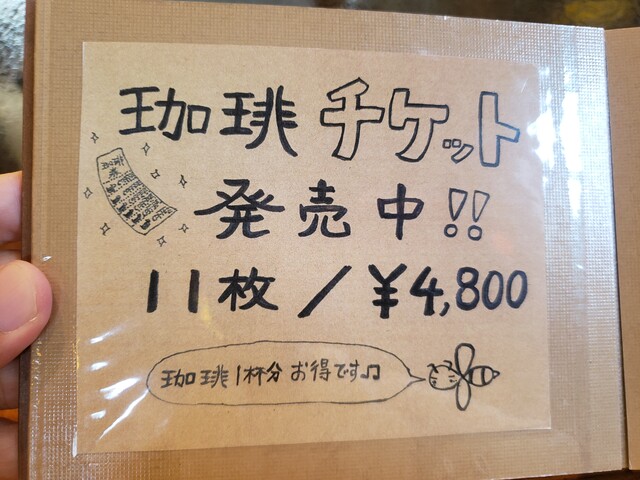 珈琲チケット
発売中!!
11枚/¥4,800
珈琲1杯分お得です♫